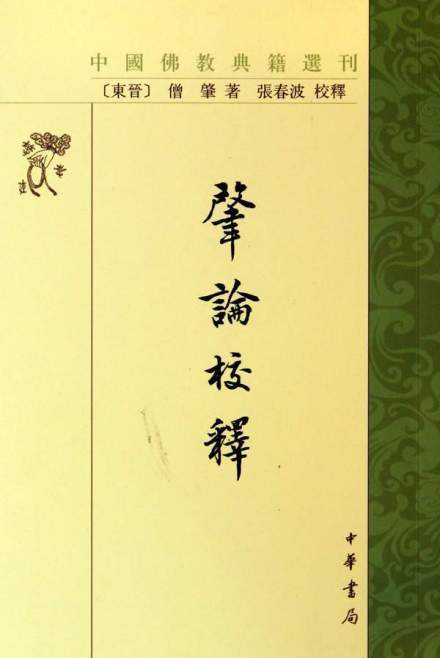 中國佛教典籍選刊
〔東晉〕 僧 肇 著 張春波 校釋
肇論校釋
中華書局